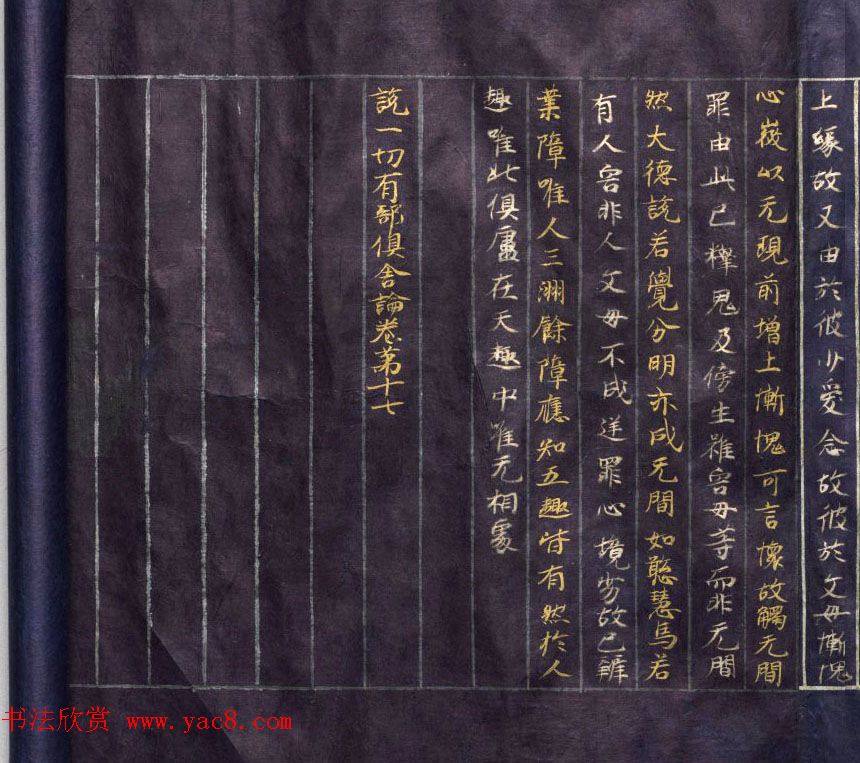 上緣故又由於彼少愛念故彼於父母慚愧
心羸以无現前增上慚愧可言懷故觸无間
罪由此已釋鬼及傍生雖害母等而非无間
然大德說若覺分明亦成无間如聡慧馬若
有人害非人父母不成逆罪心境劣故已辨
業障唯人三洲餘障應知五趣皆有然於人
趣唯北俱盧在天趣中唯无相處
說一切有部俱舍論卷第十七
书法欣赏 www.yac8.com